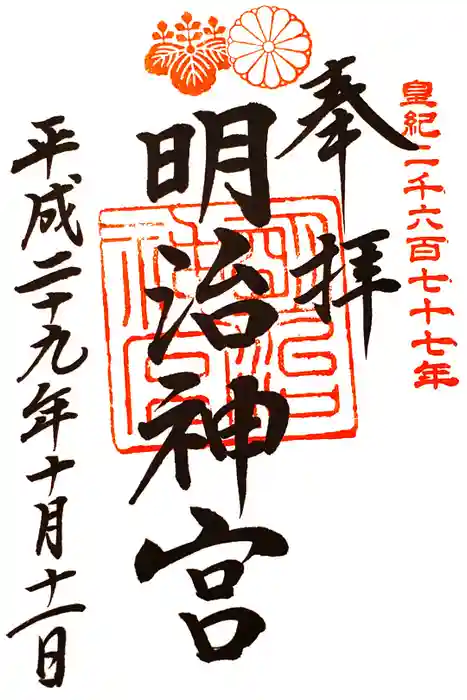 皇紀二千六百七十七年
奉拝
明治神宮
平成二十九年十月十一日
明治神宮